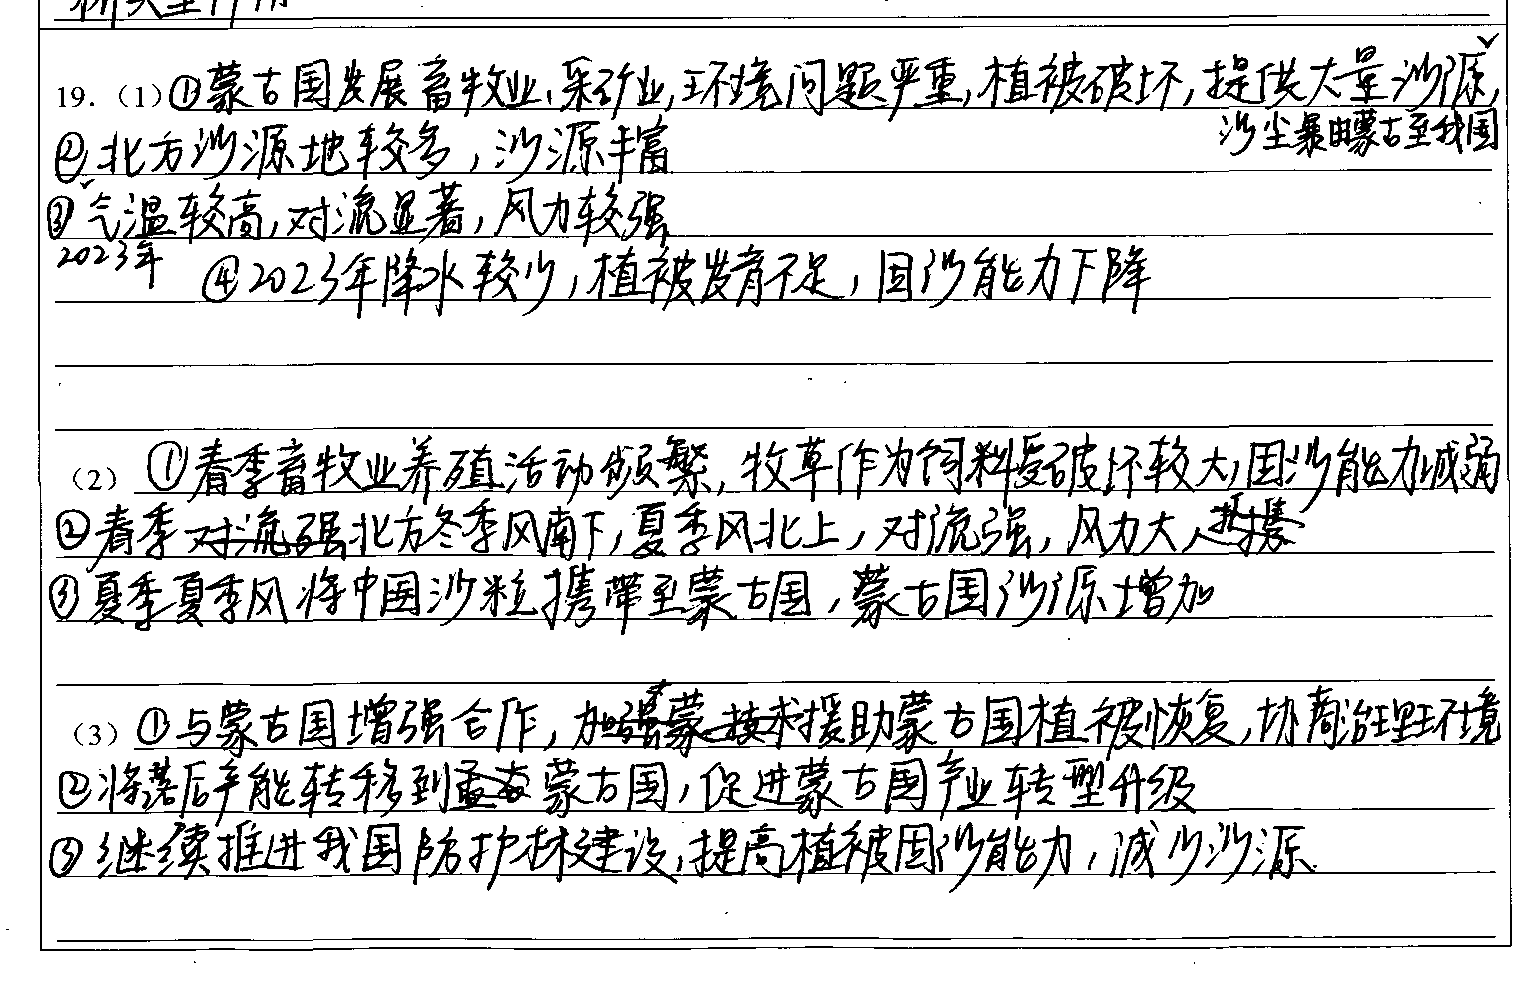 19.（1）①蒙古国发展畜牧业、采矿业,环境问题严重,植被破坏,提供大量沙源,
沙尘暴由蒙古至我国
②北方沙源地较多,沙源丰富
③气温较高,对流显著,风力较强
2023年
④2023年降水较少,植被发育不足,固沙能力下降
（2）①春季畜牧业养殖活动频繁,牧草作为饲料受破坏较大,固沙能力减弱
②春季北方冬季风南下,夏季风北上,对流强,风力大
③夏季夏季风将中国沙粒携带至蒙古国,蒙古国沙源增加
（3）①与蒙古国增强合作,援助蒙古国植被恢复,协商治理环境
②将落后产能转移到蒙古国,促进蒙古国产业转型升级
③继续推进我国防护林建设,提高植被固沙能力,减少沙源.